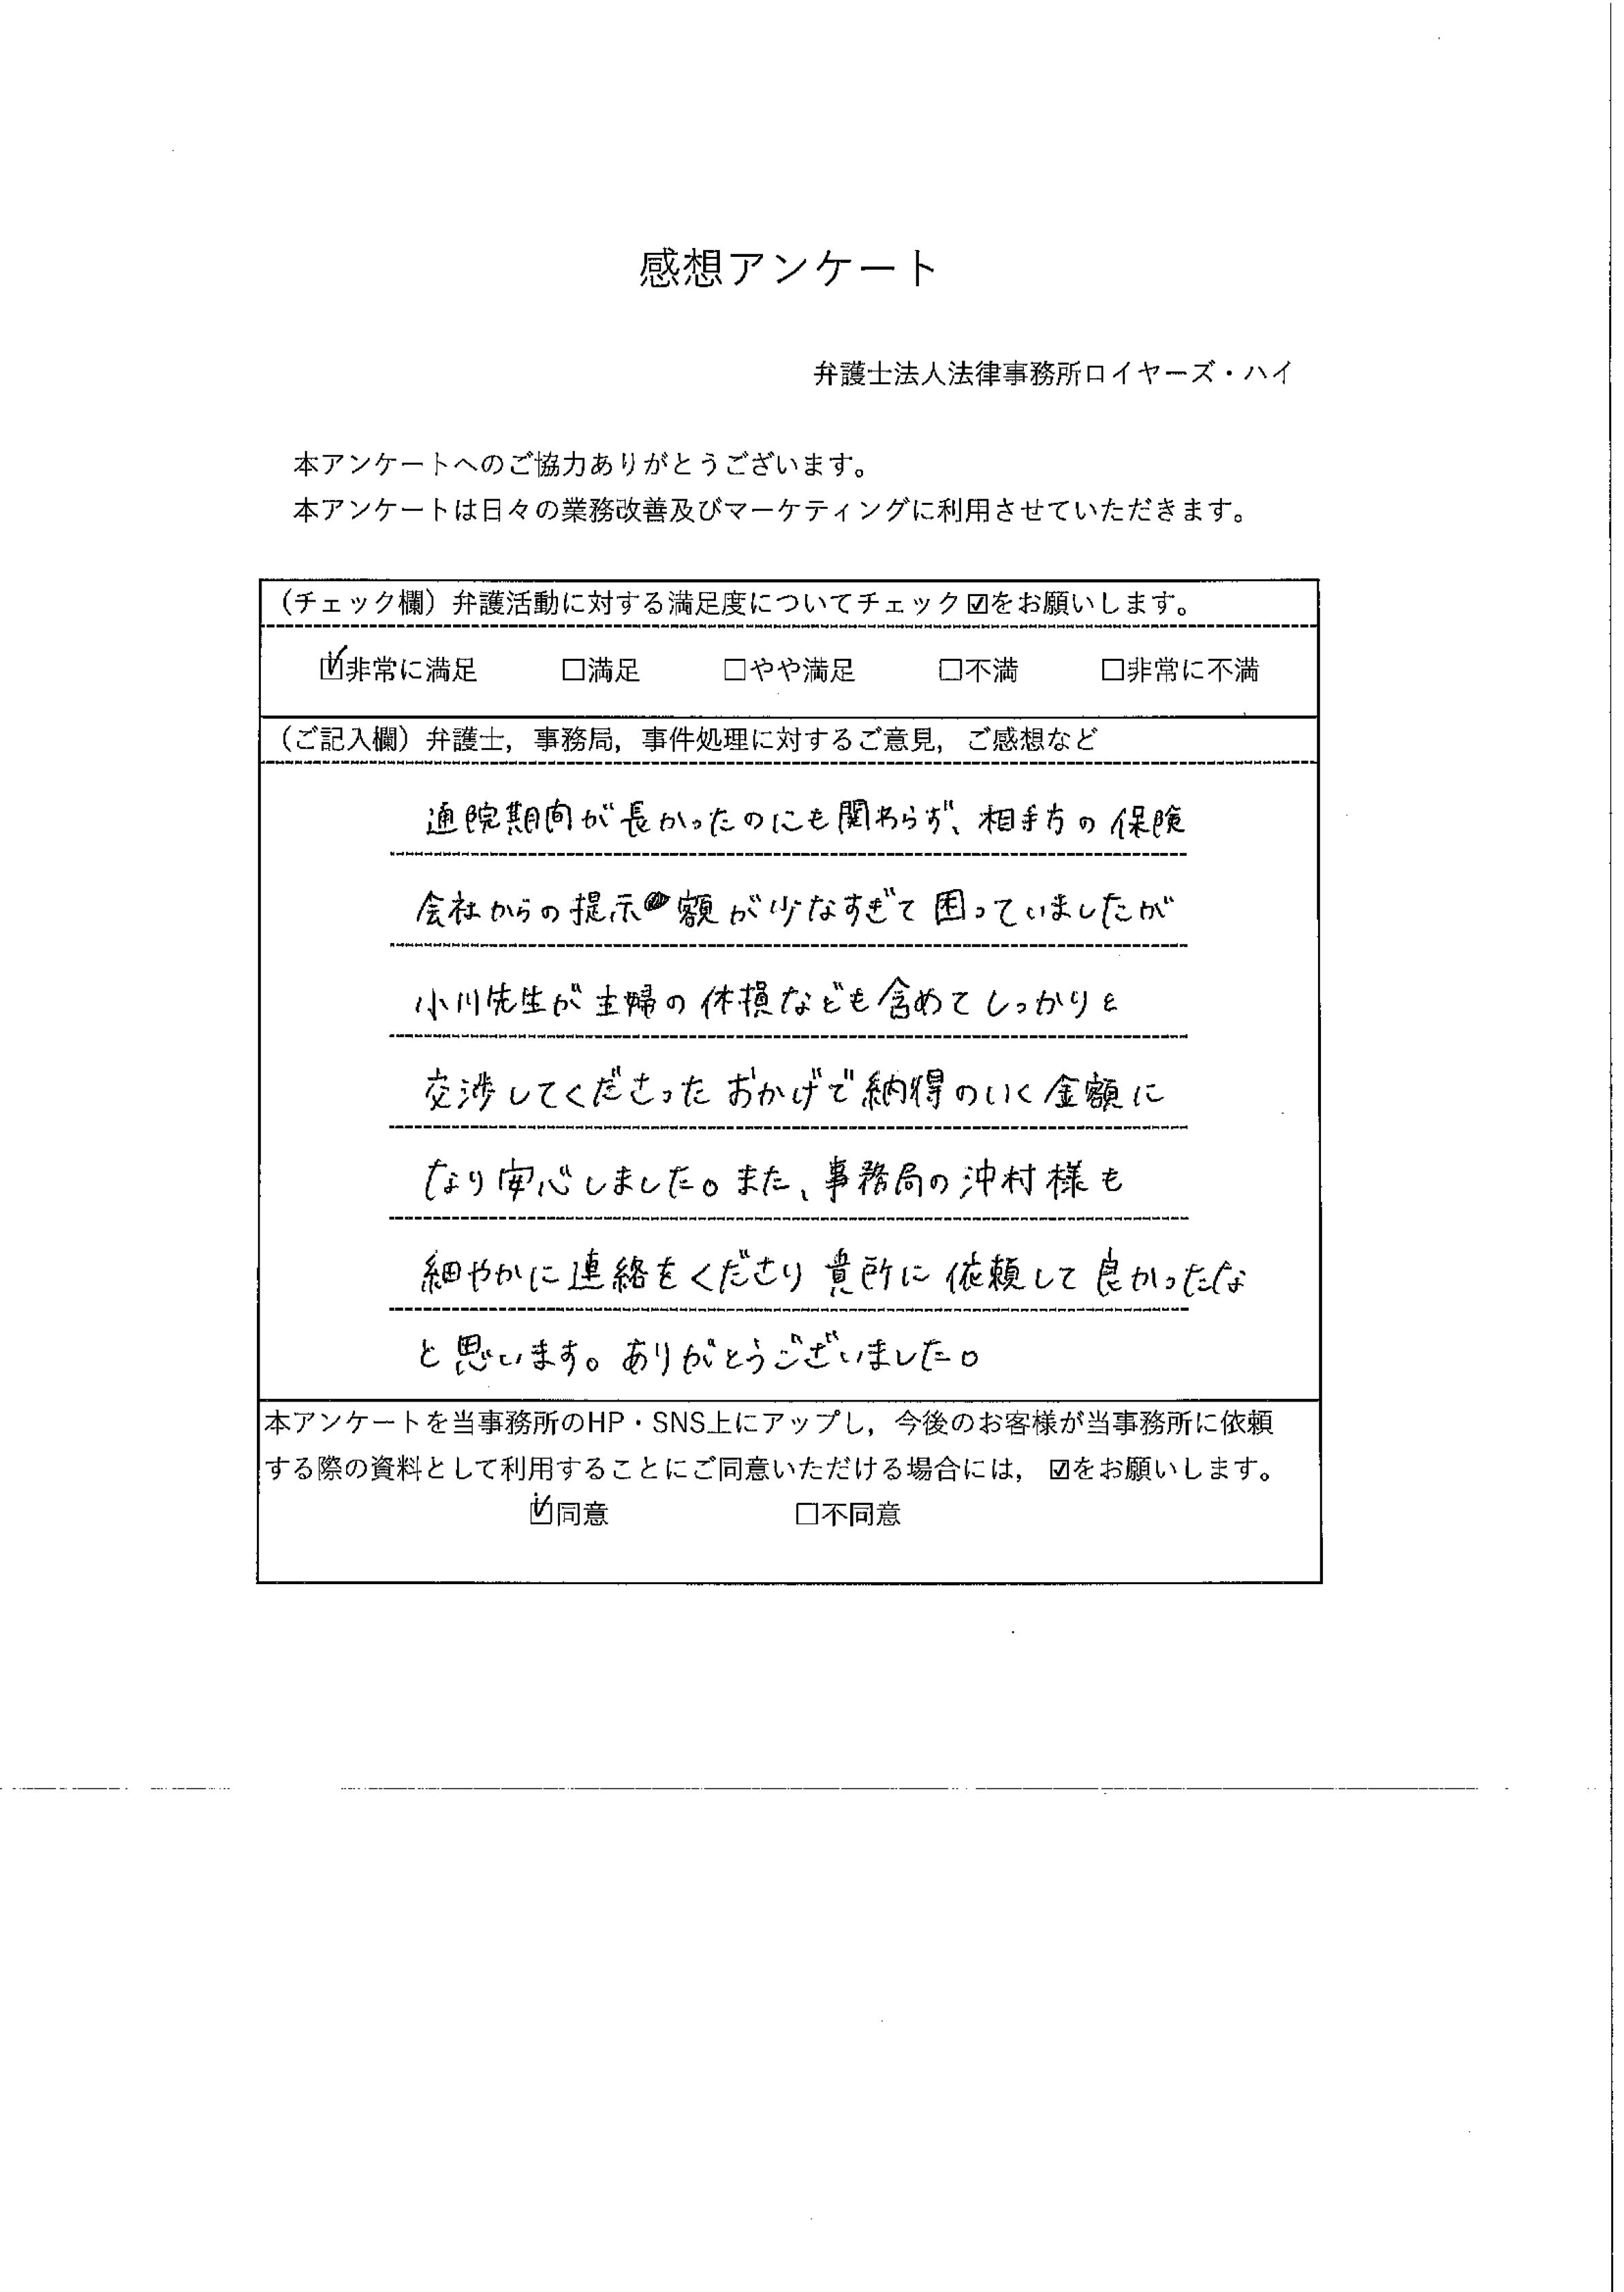 感想アンケート
弁護士法人法律事務所ロイヤーズ・ハイ
本アンケートへのご協力ありがとうございます。
本アンケートは日々の業務改善及びマーケティングに利用させていただきます。
（チェック欄）弁護活動に対する満足度についてチェック☑をお願いします。
☑非常に満足 □満足 □やや満足 □不満 □非常に不満
（ご記入欄）弁護士，事務局，事件処理に対するご意見，ご感想など
通院期間が長かったのにも関わらず、相手方の保険
会社からの提示額が少なすぎて困っていましたが
小川先生が主婦の休損なども含めてしっかりと
交渉してくださったおかげで納得のいく金額に
なり安心しました。また、事務局の沖村様も
細やかに連絡をくださり貴所に依頼して良かったな
と思います。ありがとうございました。
本アンケートを当事務所のHP・SNS上にアップし，今後のお客様が当事務所に依頼
する際の資料として利用することにご同意いただける場合には，☑をお願いします。
☑同意 □不同意